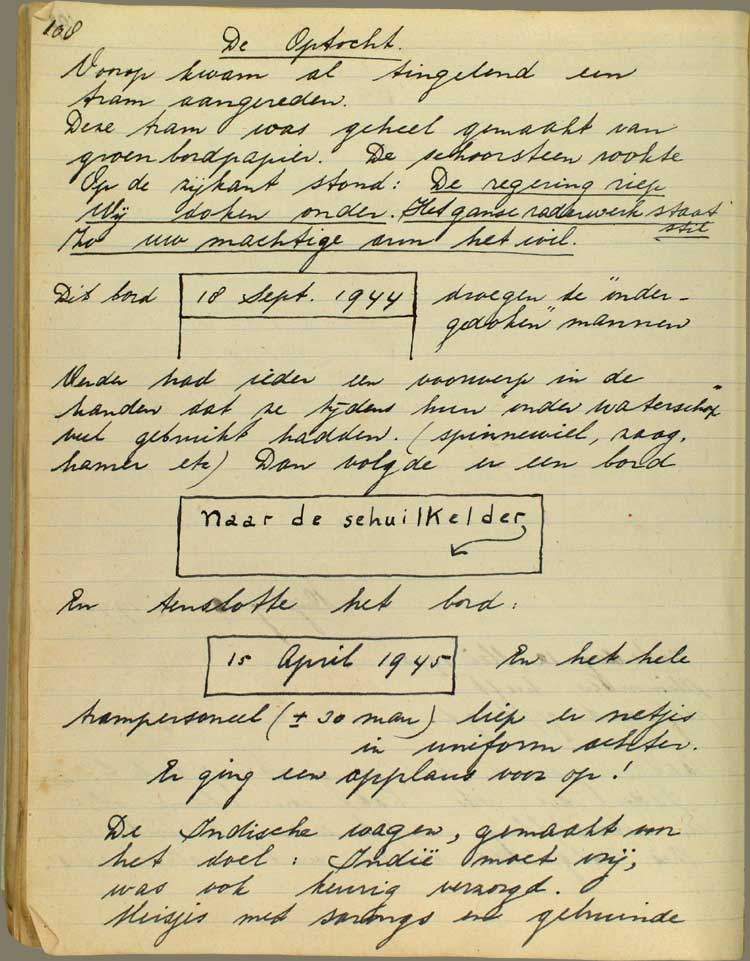 108
De Optocht.
Voorop kwam al tingelend een
tram aangereden.
Deze tram was geheel gemaakt van
groen bordpapier. De schoorsteen rookte
Op de zijkant stond: De regering riep
Wij doken onder. Het ganse raderwerk staat
stil
Zo uw machtige arm het wil.
Dit bord 18 Sept. 1944 droegen de "onder-
gedoken" mannen
Verder had ieder een voorwerp in de
handen dat ze tijdens hun "onder waterschap"
veel gebruikt hadden. (spinnewiel, zaag,
hamer etc) Dan volgde er een bord
Naar de schuilkelder
En tenslotte het bord:
15 April 1945 En het hele
trampersoneel (± 30 man) liep er netjes
in uniform achter.
Er ging een applaus voor op!
De Indische wagen, gemaakt voor
het doel: Indië moet vrij,
was ook keurig verzorgd.
Meisjes met sarongs en gebruinde